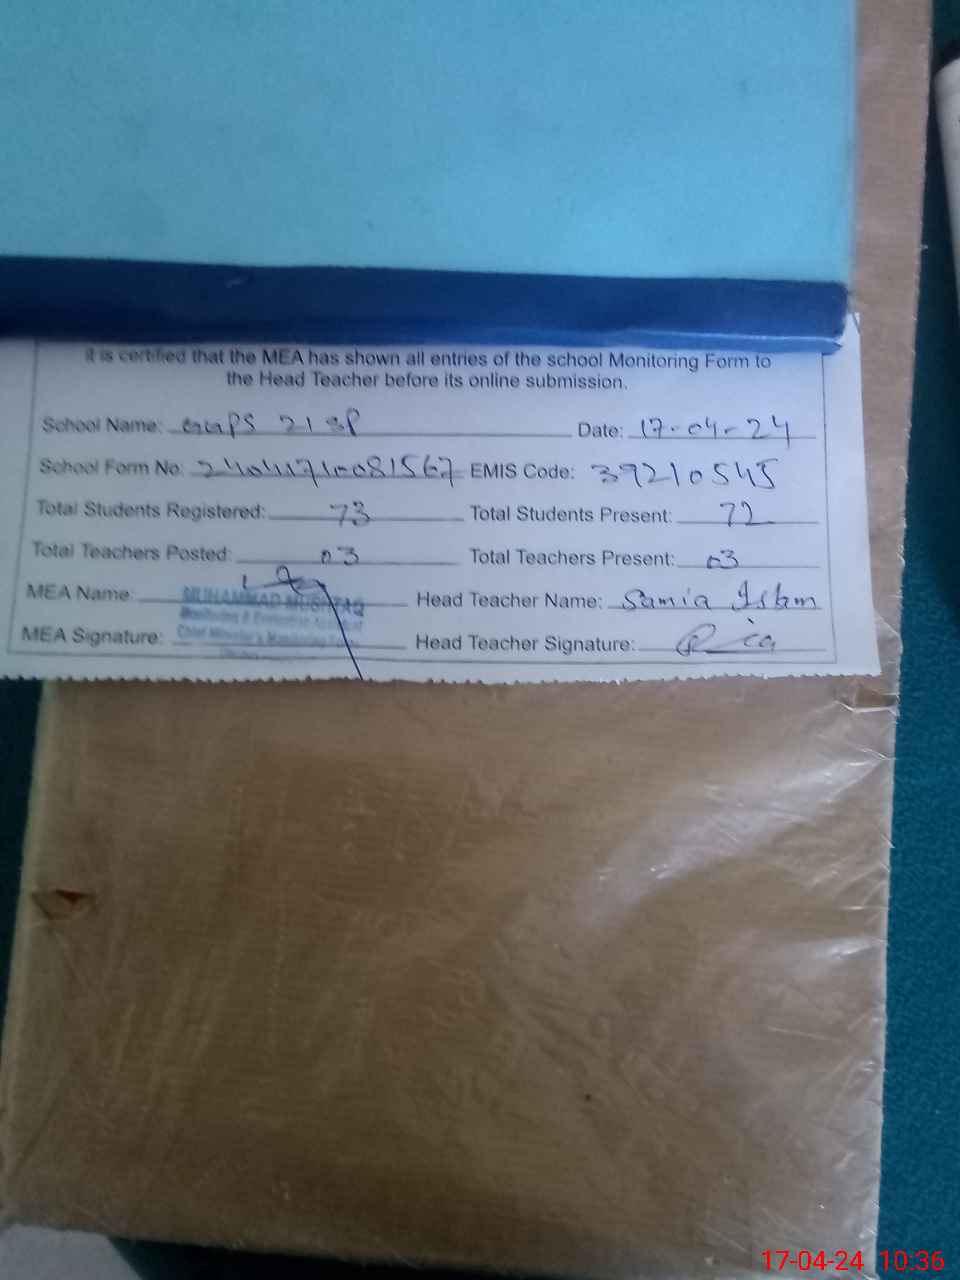 it is certified that the MEA has shown all entries of the school Monitoring Form to
the Head Teacher before its online submission.
School Name: GGPS 21 SP Date: 17-04-24
School Form No: 24041710081567 EMIS Code: 39210545
Total Students Registered: 73 Total Students Present: 72
Total Teachers Posted: 03 Total Teachers Present: 03
MEA Name: MUHAMMAD MUSHTAQ Head Teacher Name: Samia Islam
Monitoring & Evaluation Assistant
MEA Signature: Chief Minister's Monitoring Head Teacher Signature:
17-04-24 10:36